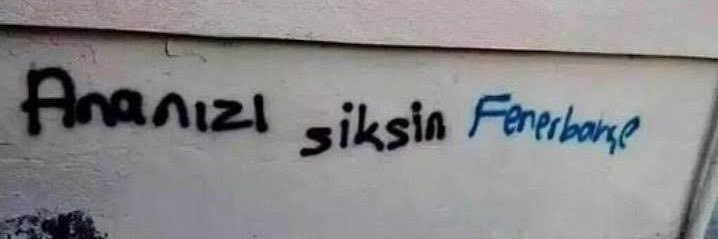 Ananızı siksin Fenerbarçe